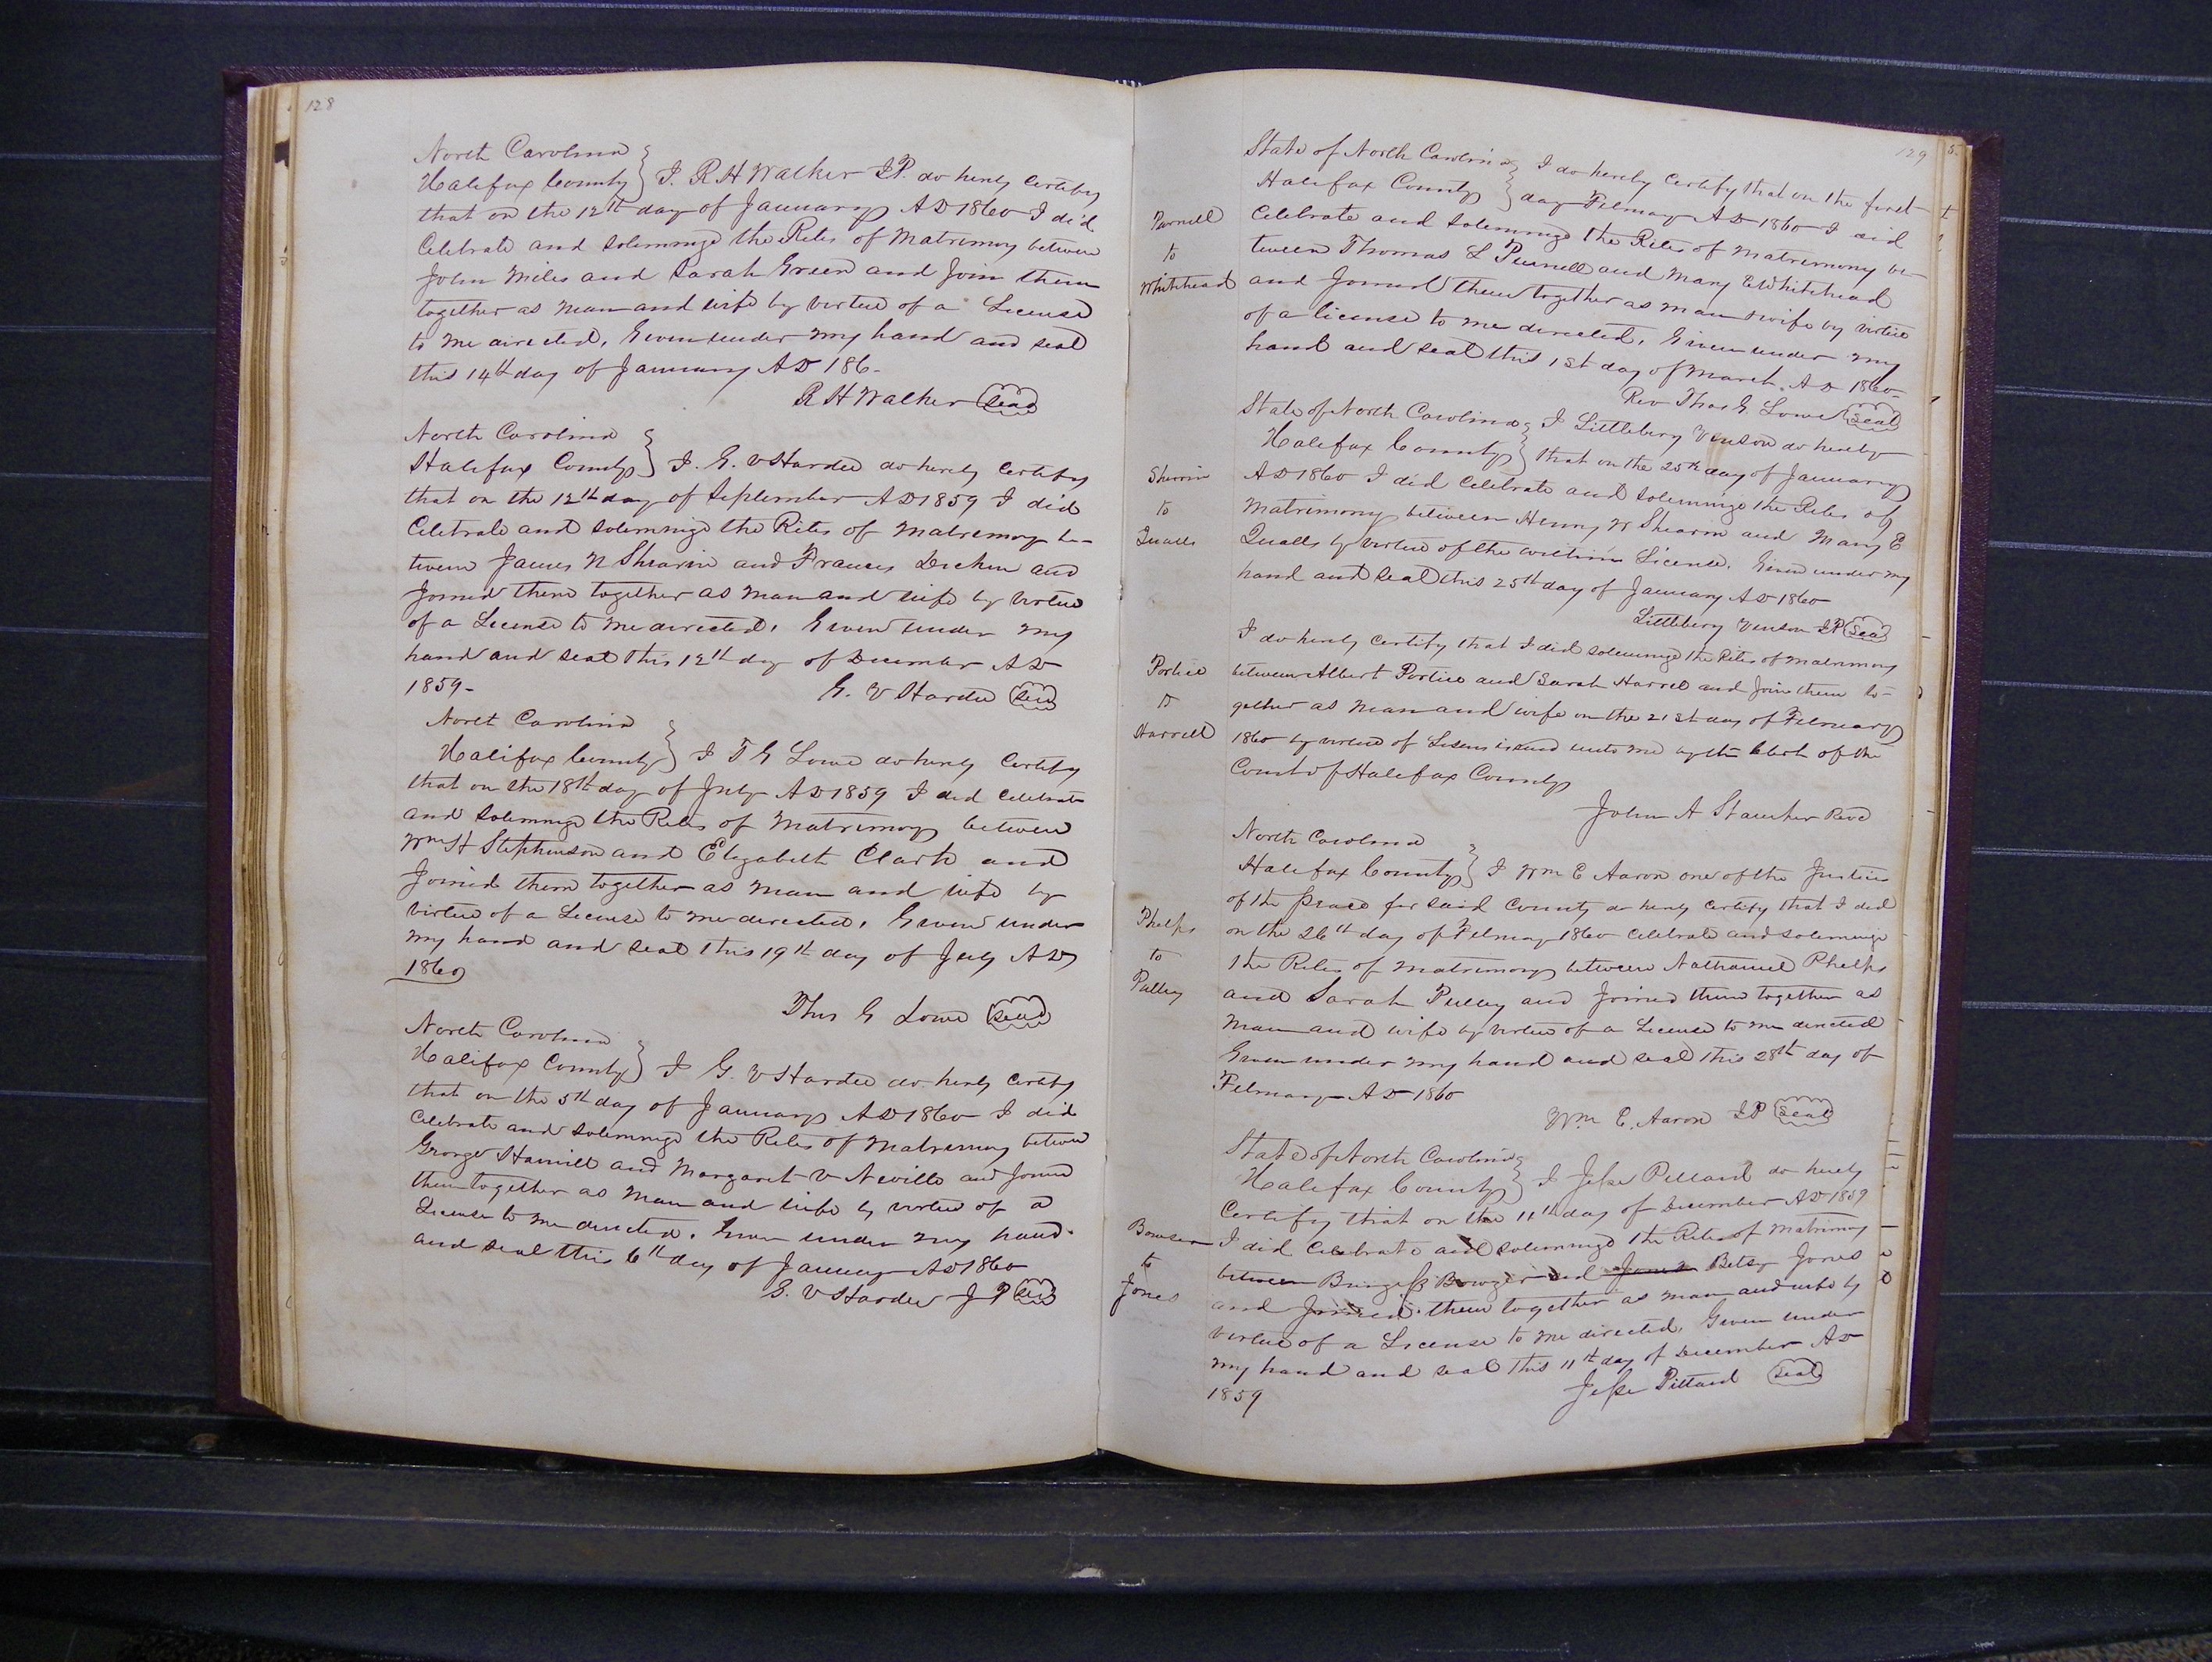 128
North Carolina
Halifax County } I. R H Walker J.P. do herely Certify
that on the 12th day of January AD 1860 I did
Celebrate and Solemnize the Rites of Matrimony between
John Miles and Sarah Green and Join them
together as Man and wife by virtue of a License
to me directed. Given under my hand and seal
this 14th day of January AD 186-
R H Walker Seal
North Carolina
Halifax County } I. G. V Hardee do herely Certify
that on the 12th day of September AD 1859 I did
Celebrate and Solemnize the Rites of Matrimony be-
tween James N Shearin and Frances Dicken and
Joined them together as man and wife by virtue
of a License to me directed. Given under my
hand and seal this 12th day of December AD
1859-
G. V Hardee Seal
North Carolina
Halifax County } I T G Lowe do herely Certify
that on the 18th day of July AD 1859 I did Celebrate
and Solemnize the Rites of Matrimony between
Wm H Stephenson and Elizabeth Clark and
Joined them together as man and wife by
virtue of a License to me directed. Given under
my hand and seal this 19th day of July AD
1860
Thos G Lowe Seal
North Carolina
Halifax County } I G. V Hardee do herely Certify
that on the 5th day of January AD 1860 I did
Celebrate and Solemnize the Rites of Matrimony between
George and Margaret V Neville and Joined
them together as Man and wife by virtue of a
License to me directed. Given under my hand
and seal this 6th day of January AD 1860
G. V Hardee J P Seal
129
State of North Carolina } I do hereby Certify that on the first
Halifax County } day Febuary AD 1860 I did
Celebrate and Solemnize the Rites of Matrimony be-
Purnell
to
Whitehead
tween Thomas L Purnell and Mary E Whitehead
and Joined them together as man & wife by virtue
of a license to me directed. Given under my
hand and seal this 1st day of March. AD 1860-
Rev Thos G Lowe Seal
State of North Carolina } I Littlebery Vinson do hereby
Halifax County } that on the 25th day of January
Shearin
to
Qualls
AD 1860 I did Celebrate and Solemnize the Rites of
Matrimony between Henry W Shearin and Mary E
Qualls by virtue of the within License. Given under my
hand and seal this 25th day of January AD 1860
Littlebery Vinson J P Seal
I do herely Certify that I did solemnize the Rites of Matrimony
Portice
to
Harrell
between Albert Portice and Sarah Harrel and Join them to-
gether as Man and wife on the 21st day of February
1860 by virtue of Lisens issued unto me by the Clerk of the
Court of Halifax County
John A Revd
North Carolina
Halifax County } I Wm E Aaron one of the Justices
of the peace for said County do herely Certify that I did
Phelps
to
Pulley
on the 26th day of Febuary 1860 Celebrate and solemnize
the Rites of matrimony between Nathaniel Phelps
and Sarah Pulley and Joined them together as
Man and wife by virtue of a License to me directed
Given under my hand and seal this 28th day of
Febuary AD 1860
Wm E. Aaron J P Seal
State of North Carolina
Halifax County } I Jesse Pittard do herely
Certify that on the 11th day of December AD 1859
Bowser
to
Jones
I did Celebrate and solemnize the Rites of Matrimony
between Burgess Bowzer and Jones Betsy Jones
and Joined them together as man and wife by
virtue of a License to me directed. Given under
my hand and seal this 11th day of December AD
1859
Jesse Pittard Seal